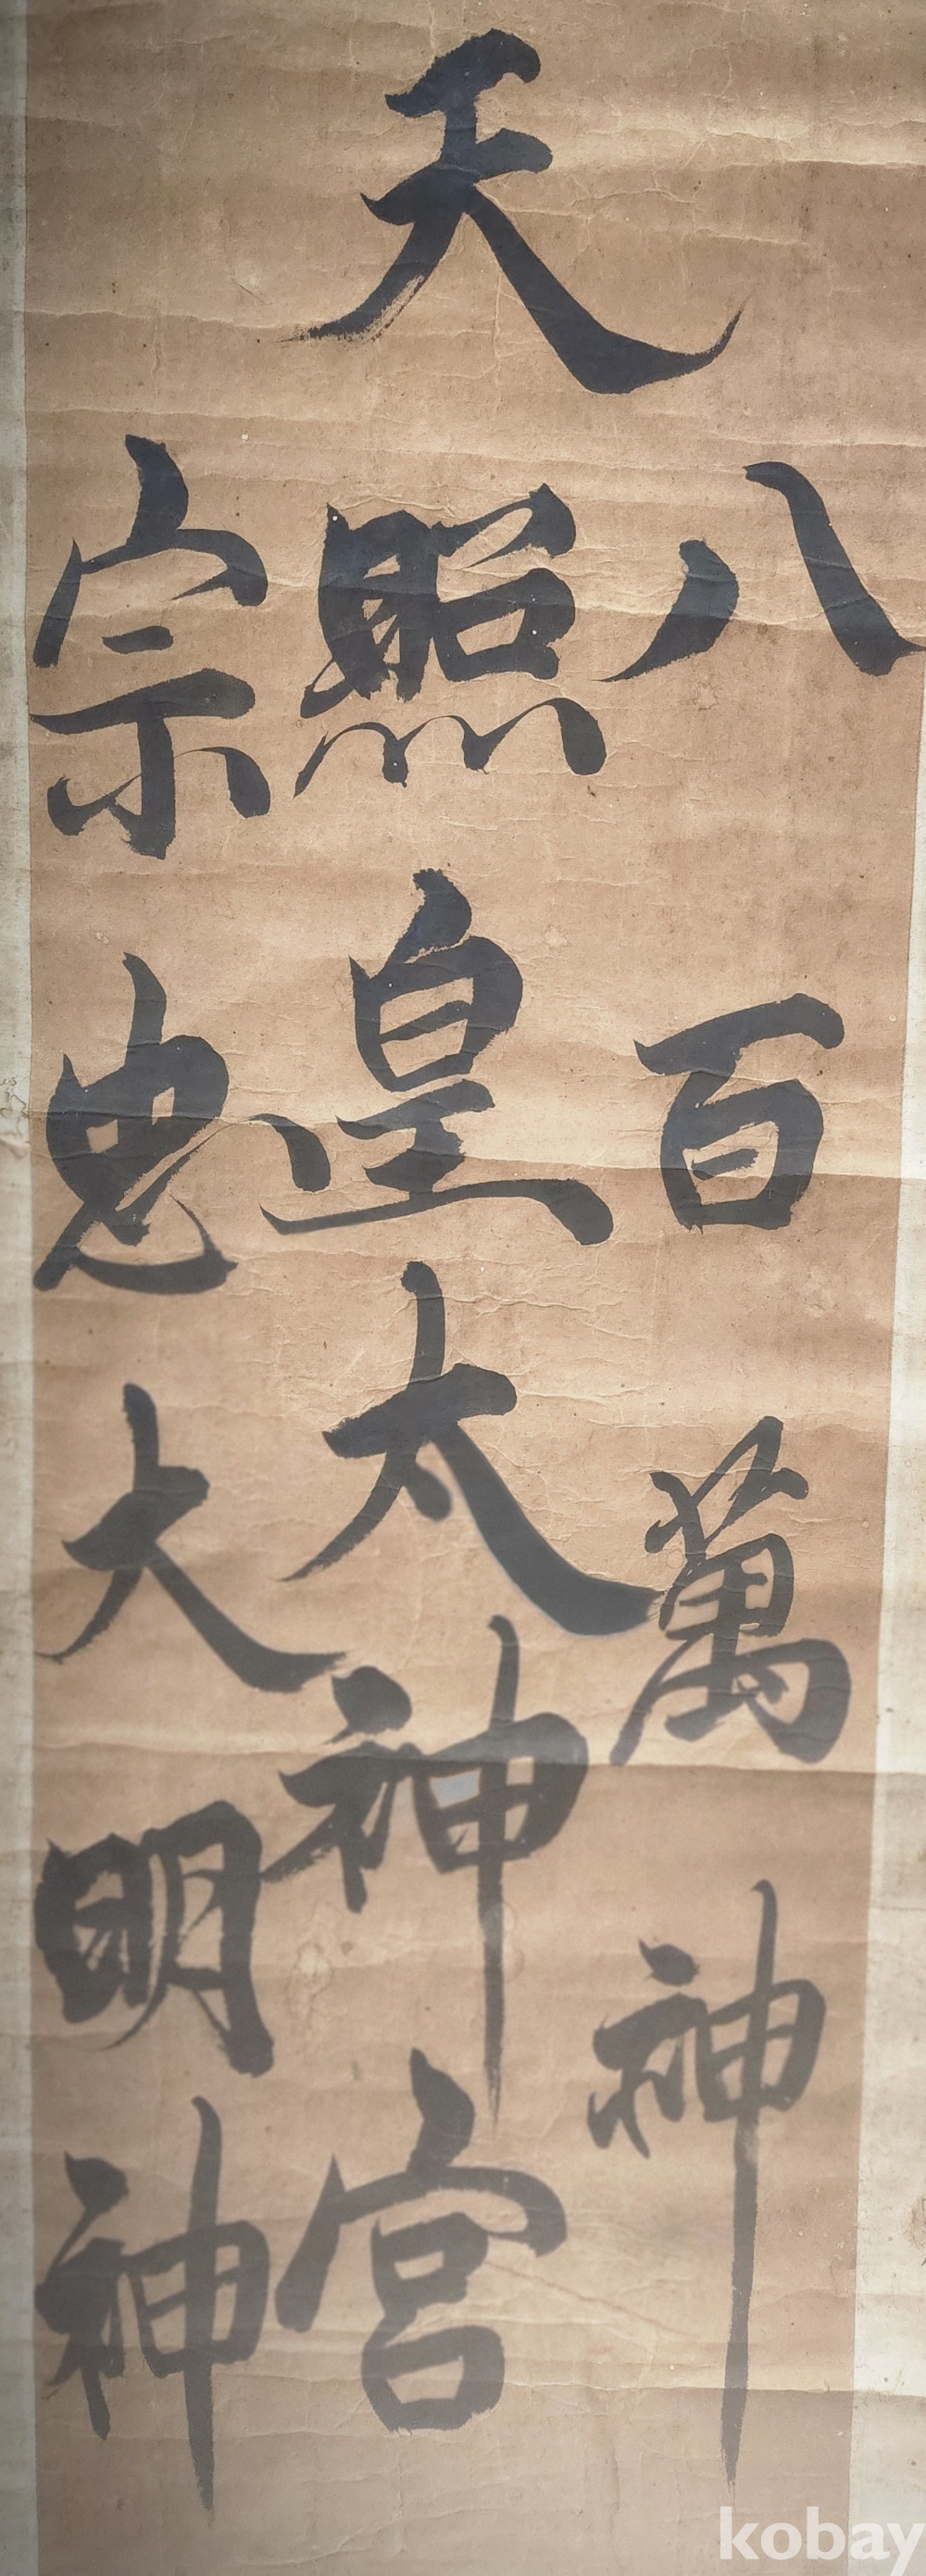 八百萬神
天照皇太神宮
宗忠大明神
kobay